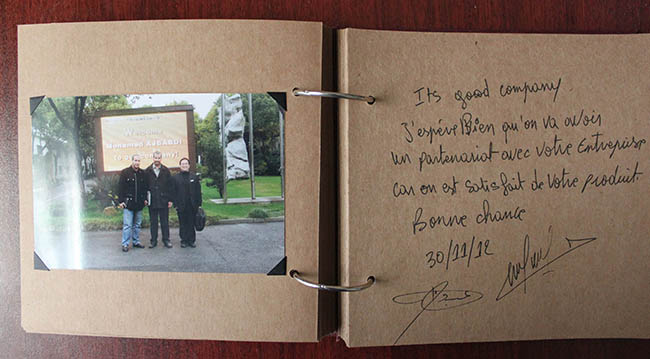 Welcome
Mohamed
to our company!
Its good company.
J'espére Bien qu'on va avoir
un partenariat avec Votre Entreprise
car on est satisfait de Votre produit.
Bonne chance
30/11/12